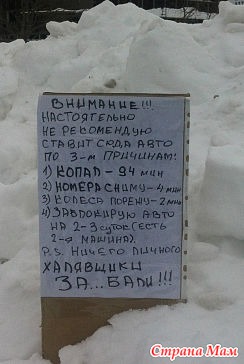 ВНИМАНИЕ!!!
НАСТОЯТЕЛЬНО
НЕ РЕКОМЕНДУЮ
СТАВИТ СЮДА АВТО
ПО 3-М ПРИЧИНАМ:
1) КОПАЛ - 94 МИН
2) НОМЕРА СНИМУ - 4 МИН
3) КОЛЕСА ПОРЕЖУ - 2 МИН
4) ЗАБЛОКИРУЮ АВТО
НА 2-3 СУТОК (ЕСТЬ
2-Я МАШИНА).
P.S. НИЧЕГО ЛИЧНОГО
ХАЛЯВЩИКИ
ЗА...БАЛИ!!!
Страна Мам
www.stranamam.ru